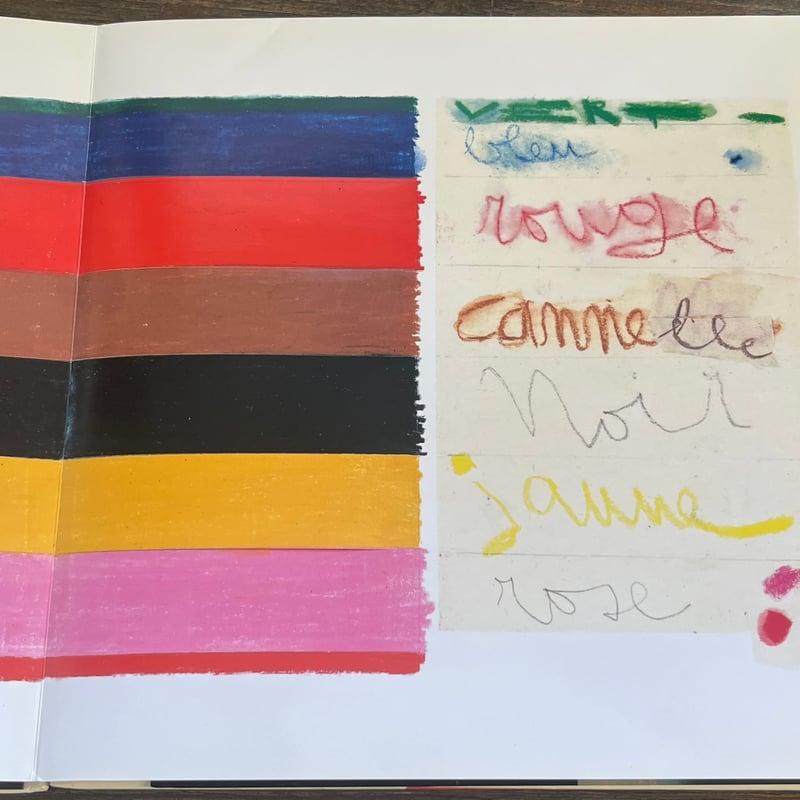 VERT
bleu
rouge
Cannelle
Noir
jaune
rose